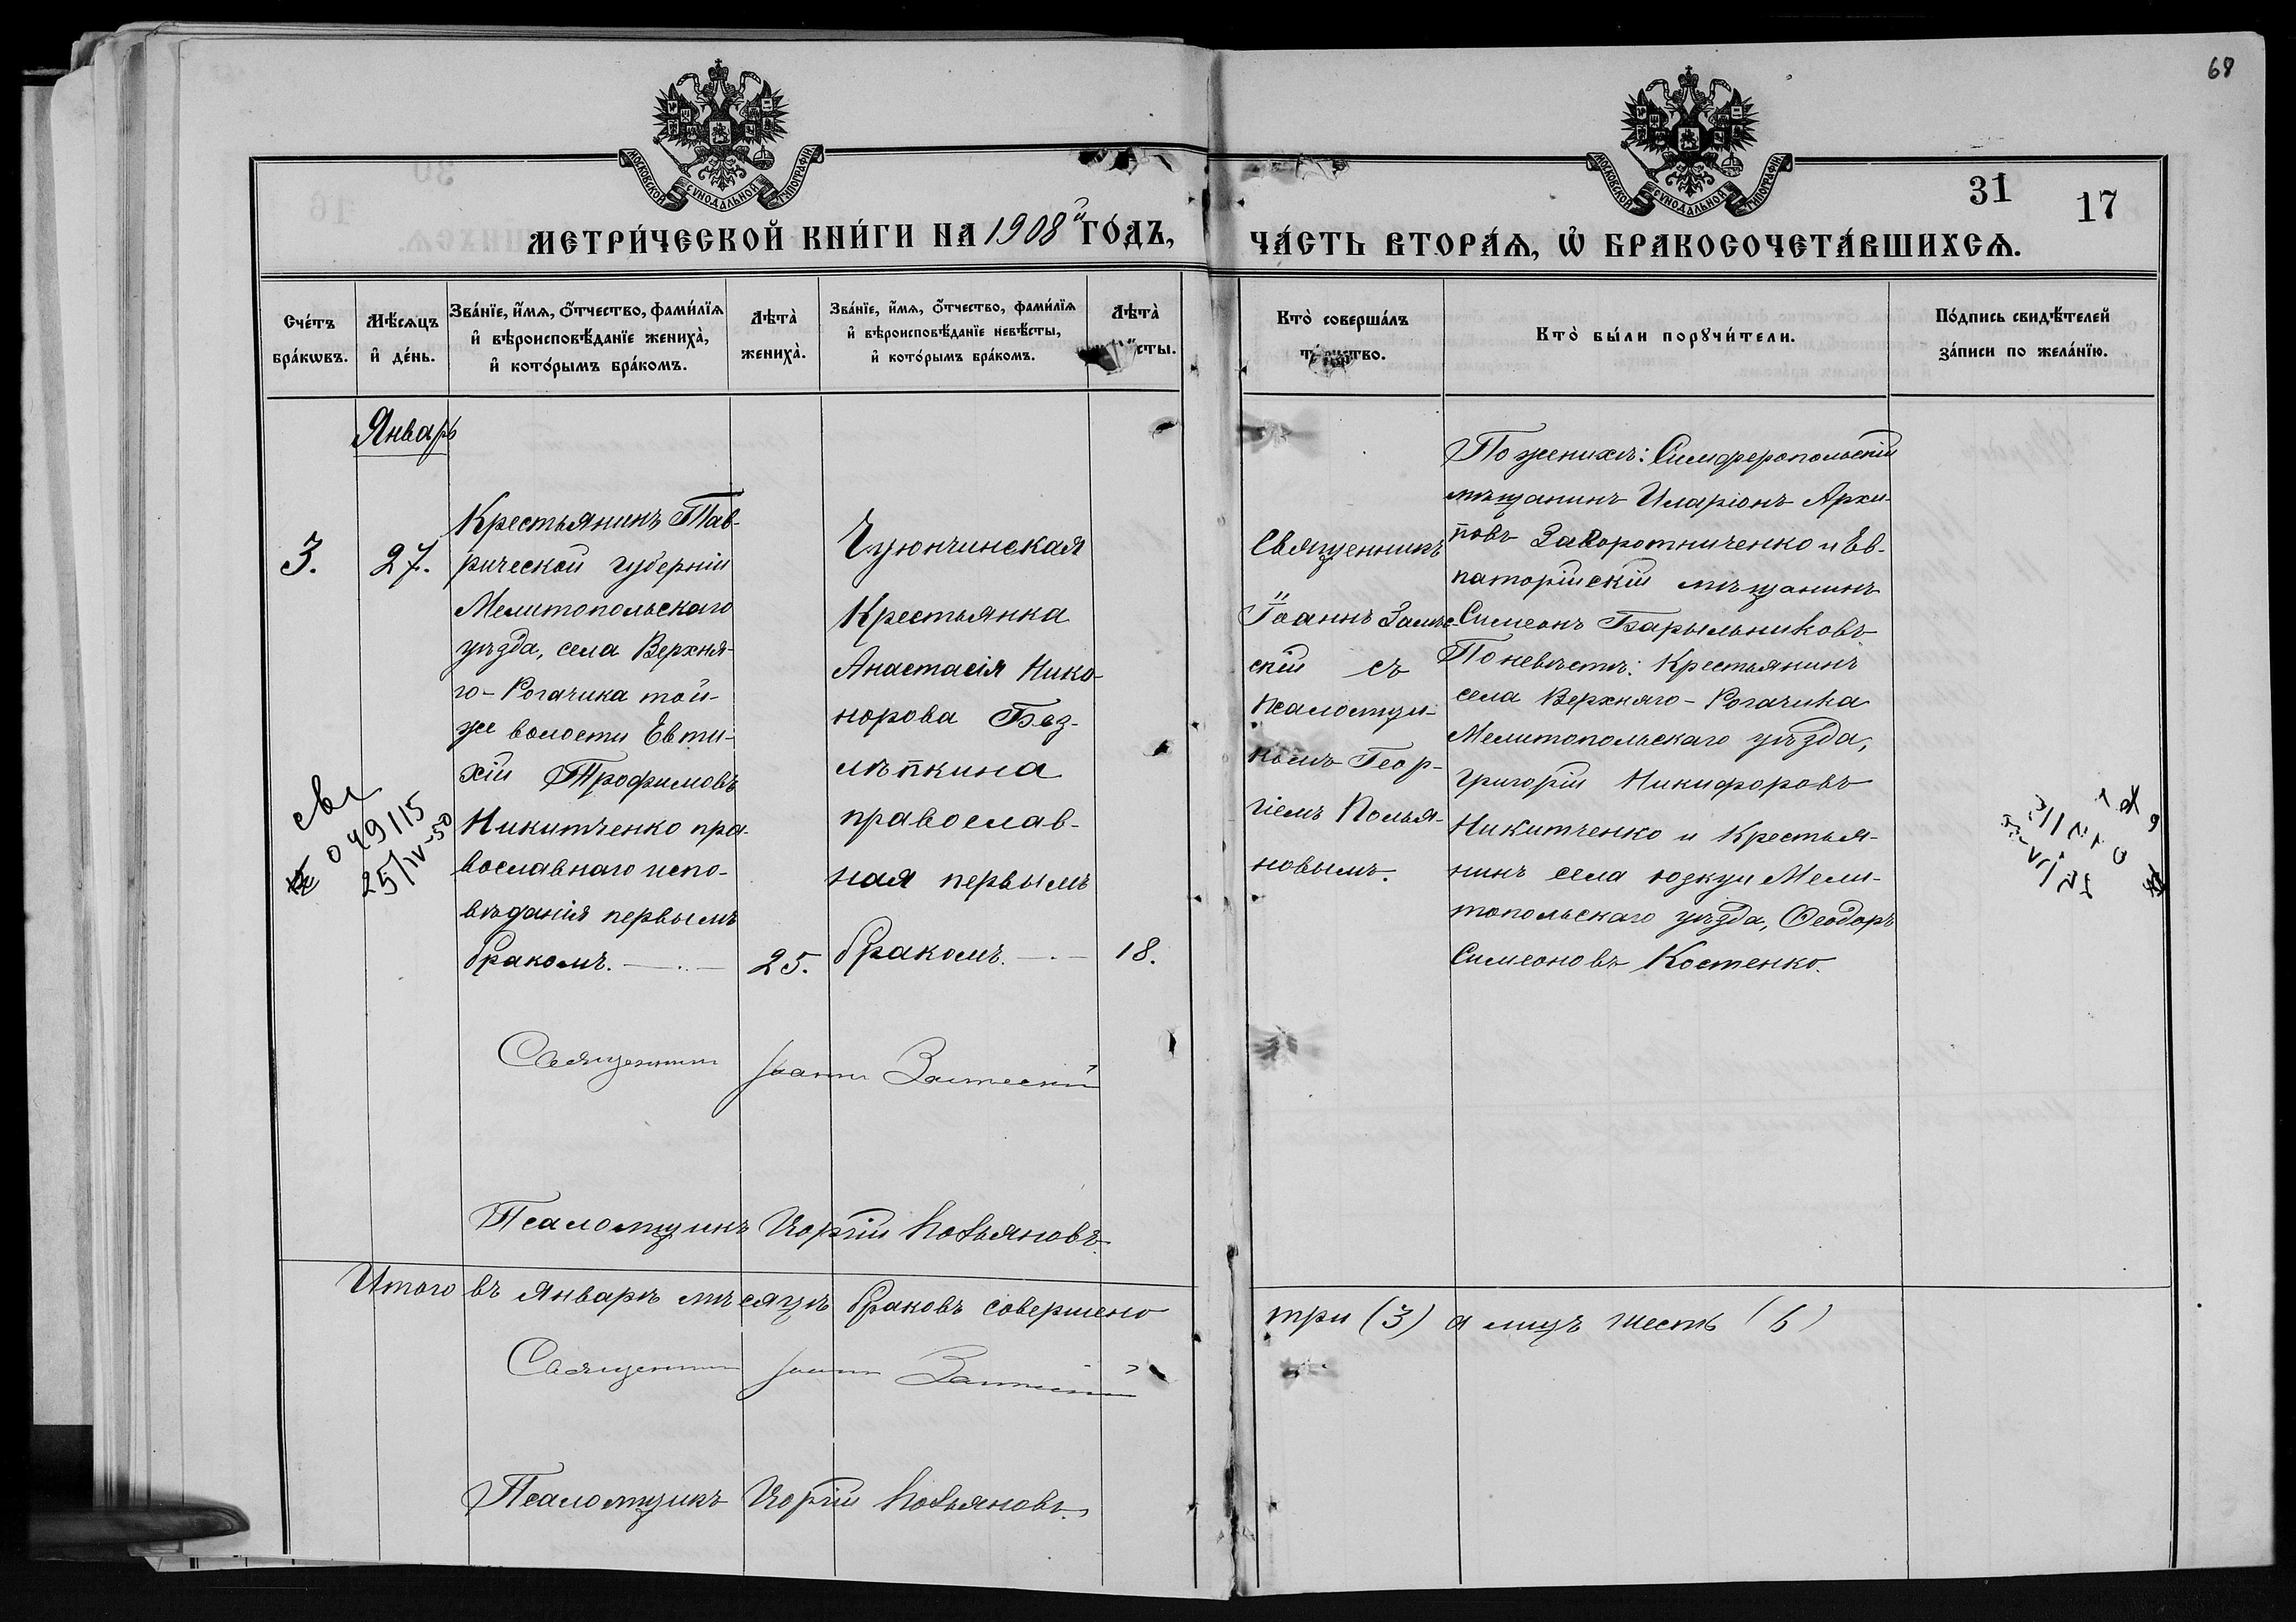 68
МОСКОВСКОЙ СѴНОДАЛЬНОЙ ТИПОГРАФІИ
МОСКОВСКОЙ СѴНОДАЛЬНОЙ ТИПОГРАФІИ
31
17
МЕТРИ́ЧЕСКОЙ КНИ́ГИ НА 1908й ГО́ДЪ,
ЧА́СТЬ ВТОРА́Ѧ, Ѡ҆ БРАКОСОЧЕТА́ВШИХСѦ.
Сче́тъ
бра́кѡвъ.
Мѣ́сѧцъ
и҆ де́нь.
Зва́нїе, и҆́мѧ, ѻ҆́тчество, фами́лїѧ
и҆ вѣроисповѣ́данїе жениха̀,
и҆ кото́рымъ бра́комъ.
Лѣта̀
жениха̀.
Зва́нїе, и҆́мѧ, ѻ҆́тчество, фами́лїѧ
и҆ вѣроисповѣ́данїе невѣ́сты,
и҆ кото́рымъ бра́комъ.
Лѣта̀
сты.
Кто̀ соверша́лъ
Кто̀ бы́ли порꙋчи́тели.
По́дпись свидѣ́телей
за́писи по жела́нїю.
Январь
3.
27.
Крестьянинъ Тав-
рической губерніи
Мелитопольскаго
уѣзда, села Верхня-
го-Рогачика той-
же волости Евти-
хій Трофимовъ
Никитченко пра-
вославнаго испо-
вѣданія первымъ
бракомъ.
25.
Крестьянка
Анастасія Нико-
норова Без-
лѣпкина
православ-
ная первымъ
бракомъ.
18.
Священникъ
Іоаннъ Замѣс-
скій съ
псаломщи-
комъ Геор-
гіемъ Полья-
новымъ.
По женихѣ: Симферопольскій
мѣщанинъ Иларіонъ Архи-
повъ Заворотниченко и Ев-
паторійскій мѣщанинъ
Симеонъ Барыльниковъ
По невѣстѣ: Крестьянинъ
села Верхняго-Рогачика
Мелитопольскаго уѣзда,
Григорій Никифоровъ
Никитченко и Крестья-
нинъ села Юзкуи Мели-
топольскаго уѣзда, Ѳеодоръ
Симеоновъ Костенко.
049115
25/IV-50
Священникъ Іоаннъ
Псаломщикъ
Итого въ Январѣ мѣсяцѣ браковъ совершено
три (3) а лицъ шесть (6)
Священникъ Іоаннъ
Псаломщикъ